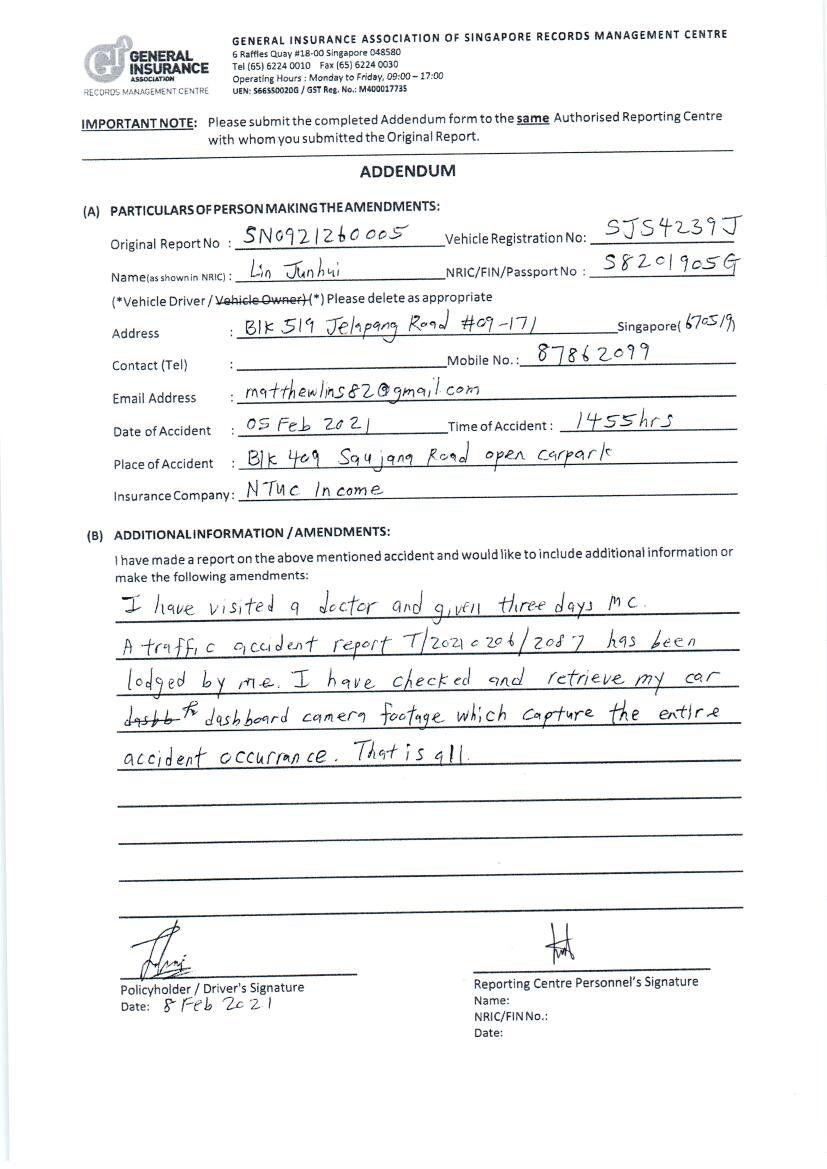 GENERAL INSURANCE ASSOCIATION OF SINGAPORE RECORDS MANAGEMENT CENTRE
6 Raffles Quay #18-00 Singapore 048580
Tel (65) 6224 0010 Fax (65) 6224 0030
Operating Hours : Monday to Friday, 09:00 – 17:00
UEN: S66SS0020G / GST Reg. No.: M400017735
GIA
GENERAL
INSURANCE
ASSOCIATION
RECORDS MANAGEMENT CENTRE
IMPORTANT NOTE: Please submit the completed Addendum form to the same Authorised Reporting Centre
with whom you submitted the Original Report.
ADDENDUM
(A) PARTICULARS OF PERSON MAKING THE AMENDMENTS:
Original Report No : SN0921260005 Vehicle Registration No: SJS4239J
Name(as shown in NRIC) : Lin Junhui NRIC/FIN/Passport No : S8201905G
(*Vehicle Driver / Vehicle Owner) (*) Please delete as appropriate
Address : Blk 519 Jelapang Road #09-171 Singapore( 670519)
Contact (Tel) : Mobile No.: 87862099
Email Address : matthewlins82@gmail.com
Date of Accident : 05 Feb 2021 Time of Accident : 1455hrs
Place of Accident : Blk 409 Saujana Road open carpark
Insurance Company: NTUC Income
(B) ADDITIONAL INFORMATION / AMENDMENTS:
I have made a report on the above mentioned accident and would like to include additional information or
make the following amendments:
I have visited a doctor and given three days MC.
A traffic accident report T/20210206/2087 has been
lodged by me. I have checked and retrieve my car
dashb dashboard camera footage which capture the entire
accident occurrance. That is all.
Policyholder / Driver's Signature
Date: 8 Feb 2021
Reporting Centre Personnel's Signature
Name:
NRIC/FIN No.:
Date: